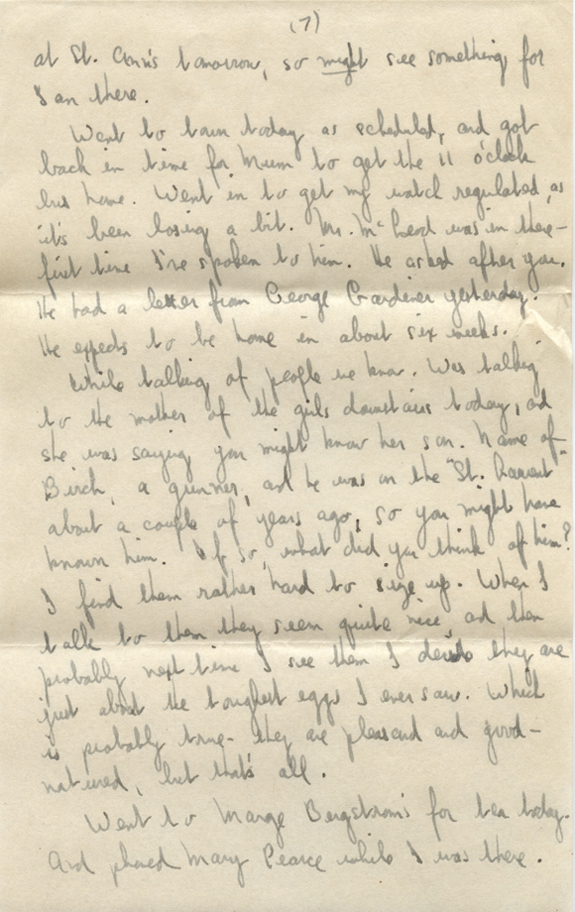 (7)
at St. Ann's tomorrow, so might see something for
Ian there.
Went to town today as scheduled, and got
back in time for Mum to get the 11 o'clock
bus home. Went in to get my watch regulated, as
it's been losing a bit. Mr. McLeod was in there -
first time I've spoken to him. He asked after you.
He had a letter from George Gardiner yesterday.
He expects to be home in about six weeks.
While talking of people we know. Was talking
to the mother of the girls downstairs today, and
she was saying you might know her son. Name of
Birch, a gunner, and he was on the "St. "
about a couple of years ago, so you might have
known him. If so, what did you think of him?
I find them rather hard to size up. When I
talk to them they seem quite nice, and then
probably next time I see them I decide they are
just about the toughest eggs I ever saw. Which
is probably true - they are pleasant and good-
natured, but that's all.
Went to Marge Bergstrom's for tea today.
And phoned Mary Pearce while I was there.